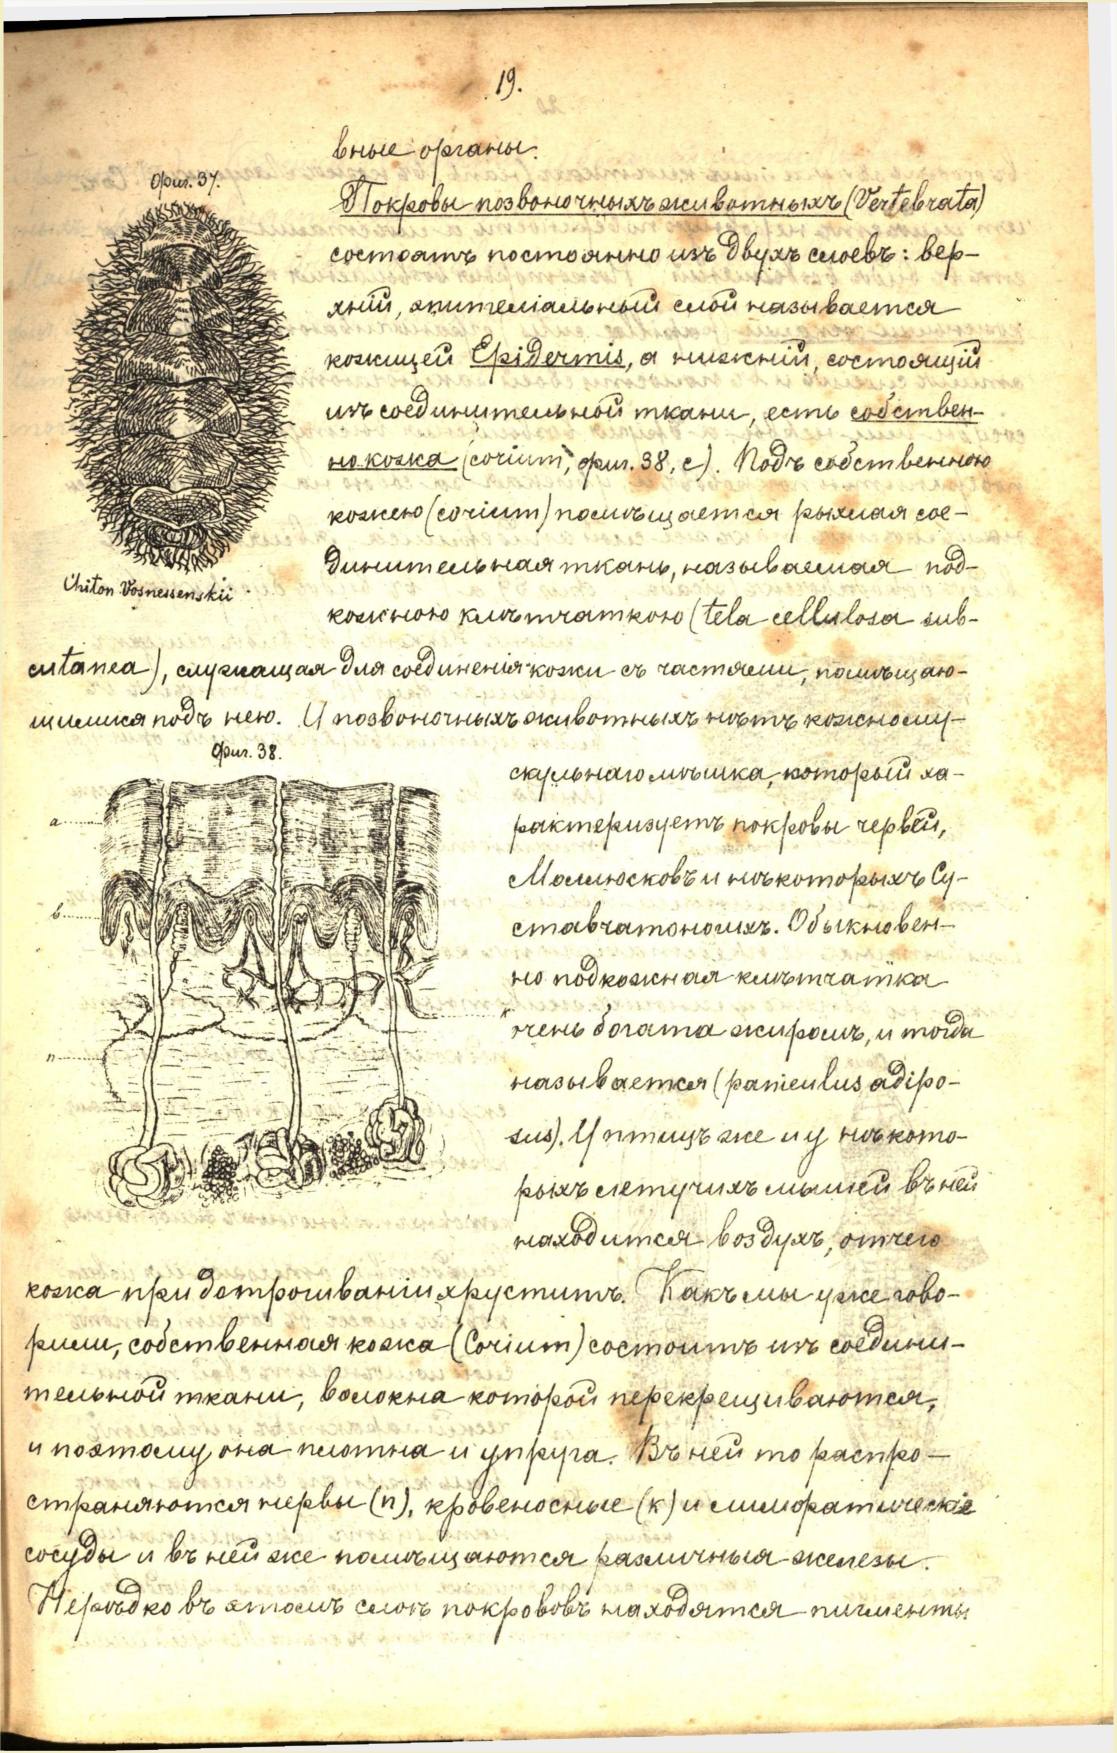 19.
вные органы.
Фиг. 37.
Покровы позвоночныхъ животныхъ (Vertebrata)
состоятъ постоянно изъ двухъ слоевъ: вер-
хній, эпителіальный слой называется
кожицей Epidermis, а нижній, состоящій
изъ соединительной ткани, есть собствен-
но кожа (corium, фиг. 38, с). Подъ собственною
кожею (corium) помѣщается рыхлая сое-
динительная ткань, называемая под-
кожною клѣтчаткою (tela cellulosa sub-
Chiton Vosnessenskii
cutanea), служащая для соединенія кожи съ частями, помѣщаю-
щимися подъ нею. У позвоночныхъ животныхъ нѣтъ кожномy-
Фиг. 38.
скульнаго мѣшка, который ха-
рактеризуетъ покровы червей,
Моллюсковъ и нѣкоторыхъ Су-
ставчатоногихъ. Обыкновен-
но подкожная клѣтчатка
очень богата жиромъ, и тогда
называется (paniculus adipo-
sus). У птицъ же и у нѣкото-
рыхъ летучихъ мышей въ ней
находится воздухъ, отчего
а
в
к
n
кожа при дотрогиваніи хруститъ. Какъ мы уже гово-
рили, собственная кожа (Corium) состоитъ изъ соедини-
тельной ткани, волокна которой перекрещиваются,
и поэтому она плотна и упруга. Въ ней то распро-
страняются нервы (n), кровеносные (к) и лимфатическіе
сосуды и въ ней же помѣщаются различныя железы.
Нерѣдко въ этомъ слоѣ покрововъ находятся пигменты